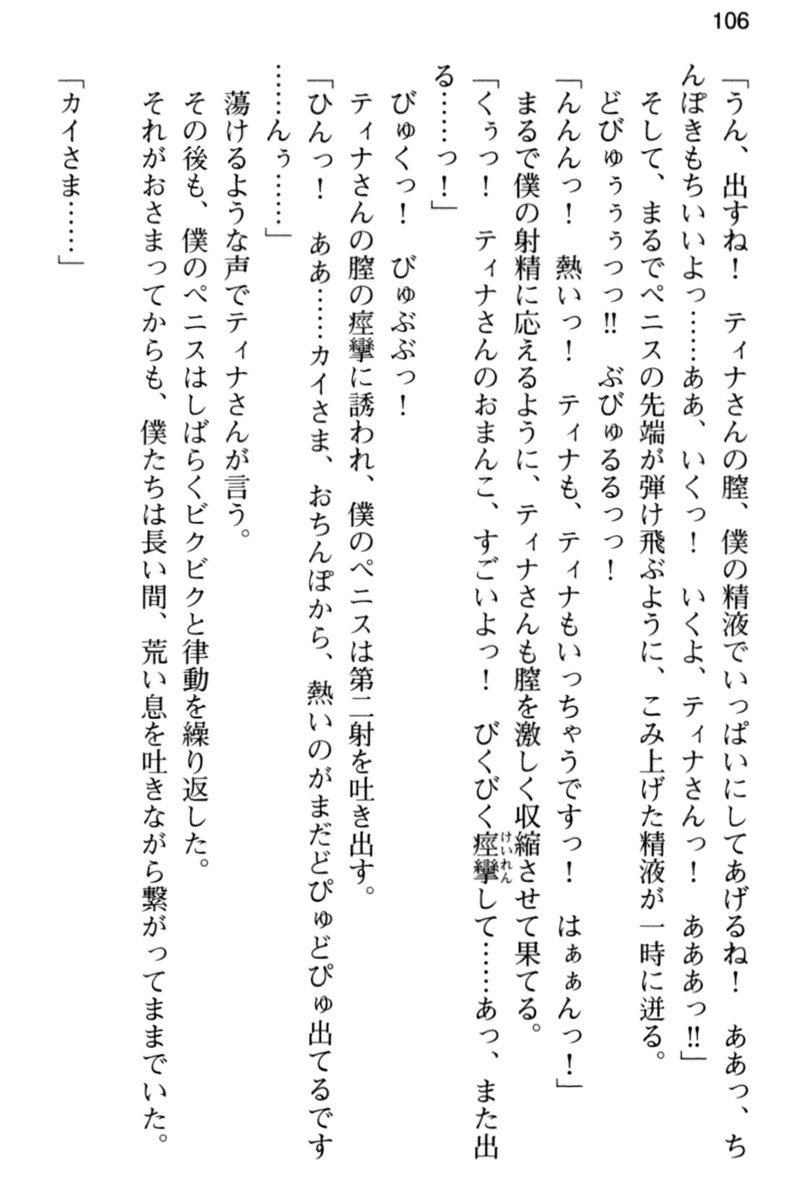 106
「うん、出すね！　ティナさんの膣、僕の精液でいっぱいにしてあげるね！　ああっ、ち
んぽきもちいいよっ……ああ、いくっ！　いくよ、ティナさんっ！　あああっ!!」
そして、まるでペニスの先端が弾け飛ぶように、こみ上げた精液が一時に迸る。
どびゅぅぅぅっっ!!　ぶびゅるるっっ！
「んんんっ！　熱いっ！　ティナも、ティナもいっちゃうですっ！　はぁぁんっ！」
まるで僕の射精に応えるように、ティナさんも膣を激しく収縮させて果てる。
「くぅっ！　ティナさんのおまんこ、すごいよっ！　びくびく痙攣して……あっ、また出
けいれん
る……っ！」
びゅくっ！　びゅぶぶっ！
ティナさんの膣の痙攣に誘われ、僕のペニスは第二射を吐き出す。
「ひんっ！　ああ……カイさま、おちんぽから、熱いのがまだどぴゅどぴゅ出てるです
……んぅ……」
蕩けるような声でティナさんが言う。
その後も、僕のペニスはしばらくビクビクと律動を繰り返した。
それがおさまってからも、僕たちは長い間、荒い息を吐きながら繋がってままでいた。
「カイさま……」